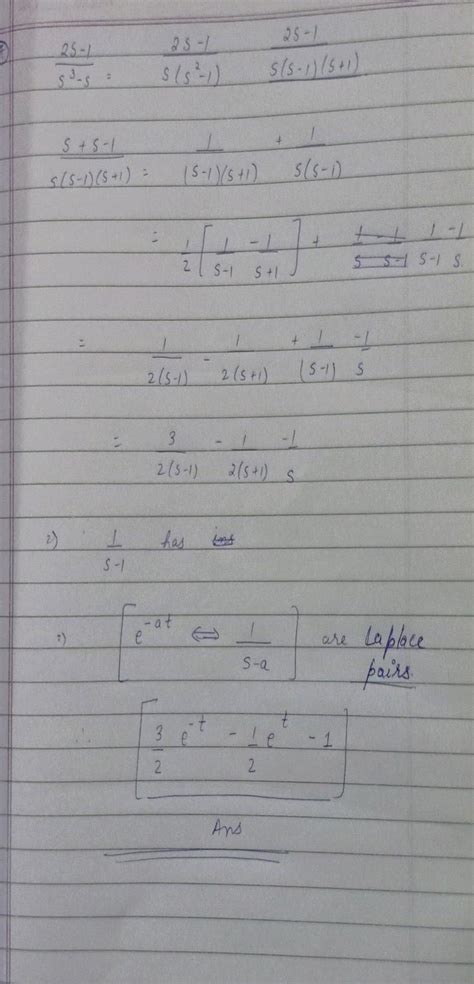 (2s-1)/(s³-s) = (2s-1)/(s(s²-1)) (2s-1)/(s(s-1)(s+1))
(s+s-1)/(s(s-1)(s+1)) = 1/((s-1)(s+1)) + 1/(s(s-1))
= 1/2 [1/(s-1) - 1/(s+1)] + 1/s - 1/(s-1) 1/(s-1) - 1/s
= 1/(2(s-1)) - 1/(2(s+1)) + 1/(s-1) - 1/s
= 3/(2(s-1)) - 1/(2(s+1)) - 1/s
2) 1/(s-1) has
[e^(-at) ⇔ 1/(s-a)] are Laplace
pairs.
∴ [3/2 e^(-t) - 1/2 e^t - 1]
Ans